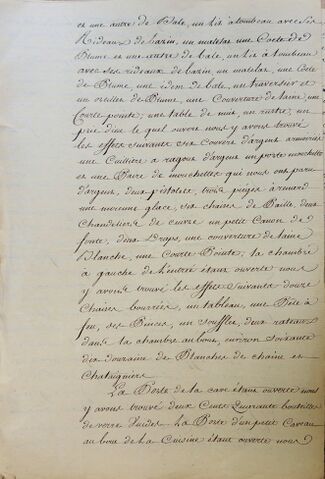 et une autre de Bale, un lit a tombeau avec ses
Rideaux de bazin, un matelas une Coete de
Plume et une autre de bale, un lit a tombeau
avec ses rideaux de bazin, un matelas, une Coete
de Plume, une idem de bale, un traversier et
un oreiller de Plume, une Couverture de laine, une
Courte pointe, une table de nuit, un
prie dieu le quel ouvert nous y avons trouvé
les effets suivants six Couverts d'argent armoriés
une Cuilière a ragout d'argent un porte mouchette
et une Paire de mouchettes qui nous ont paru
d'argent, deux pistolets, trois pièges a renard
une moyenne glace, six chaises de Paille, deux
Chandeliers de cuivre un petit Canon de
fonte, deux Draps, une couverture de laine
Blanche, une Courte Pointe; la chambre
à gauche de l'entrée étant ouverte nous
y avons trouvé les effets suivants douze
Chaises bourrées, un tableau, une Pele a
feu, des Pinces, un Soufflet, deux rateaux
dans la chambre au bout, environ soixante
dix douzaine de Planches de chaine et
Chataigniers
La Porte de la cave étant ouverte nous
y avons trouvé deux Cents Quarante bouteilles
de verre vuides. La Porte d'un petit Caveau
au bout de la Cuisine étant ouverte nous